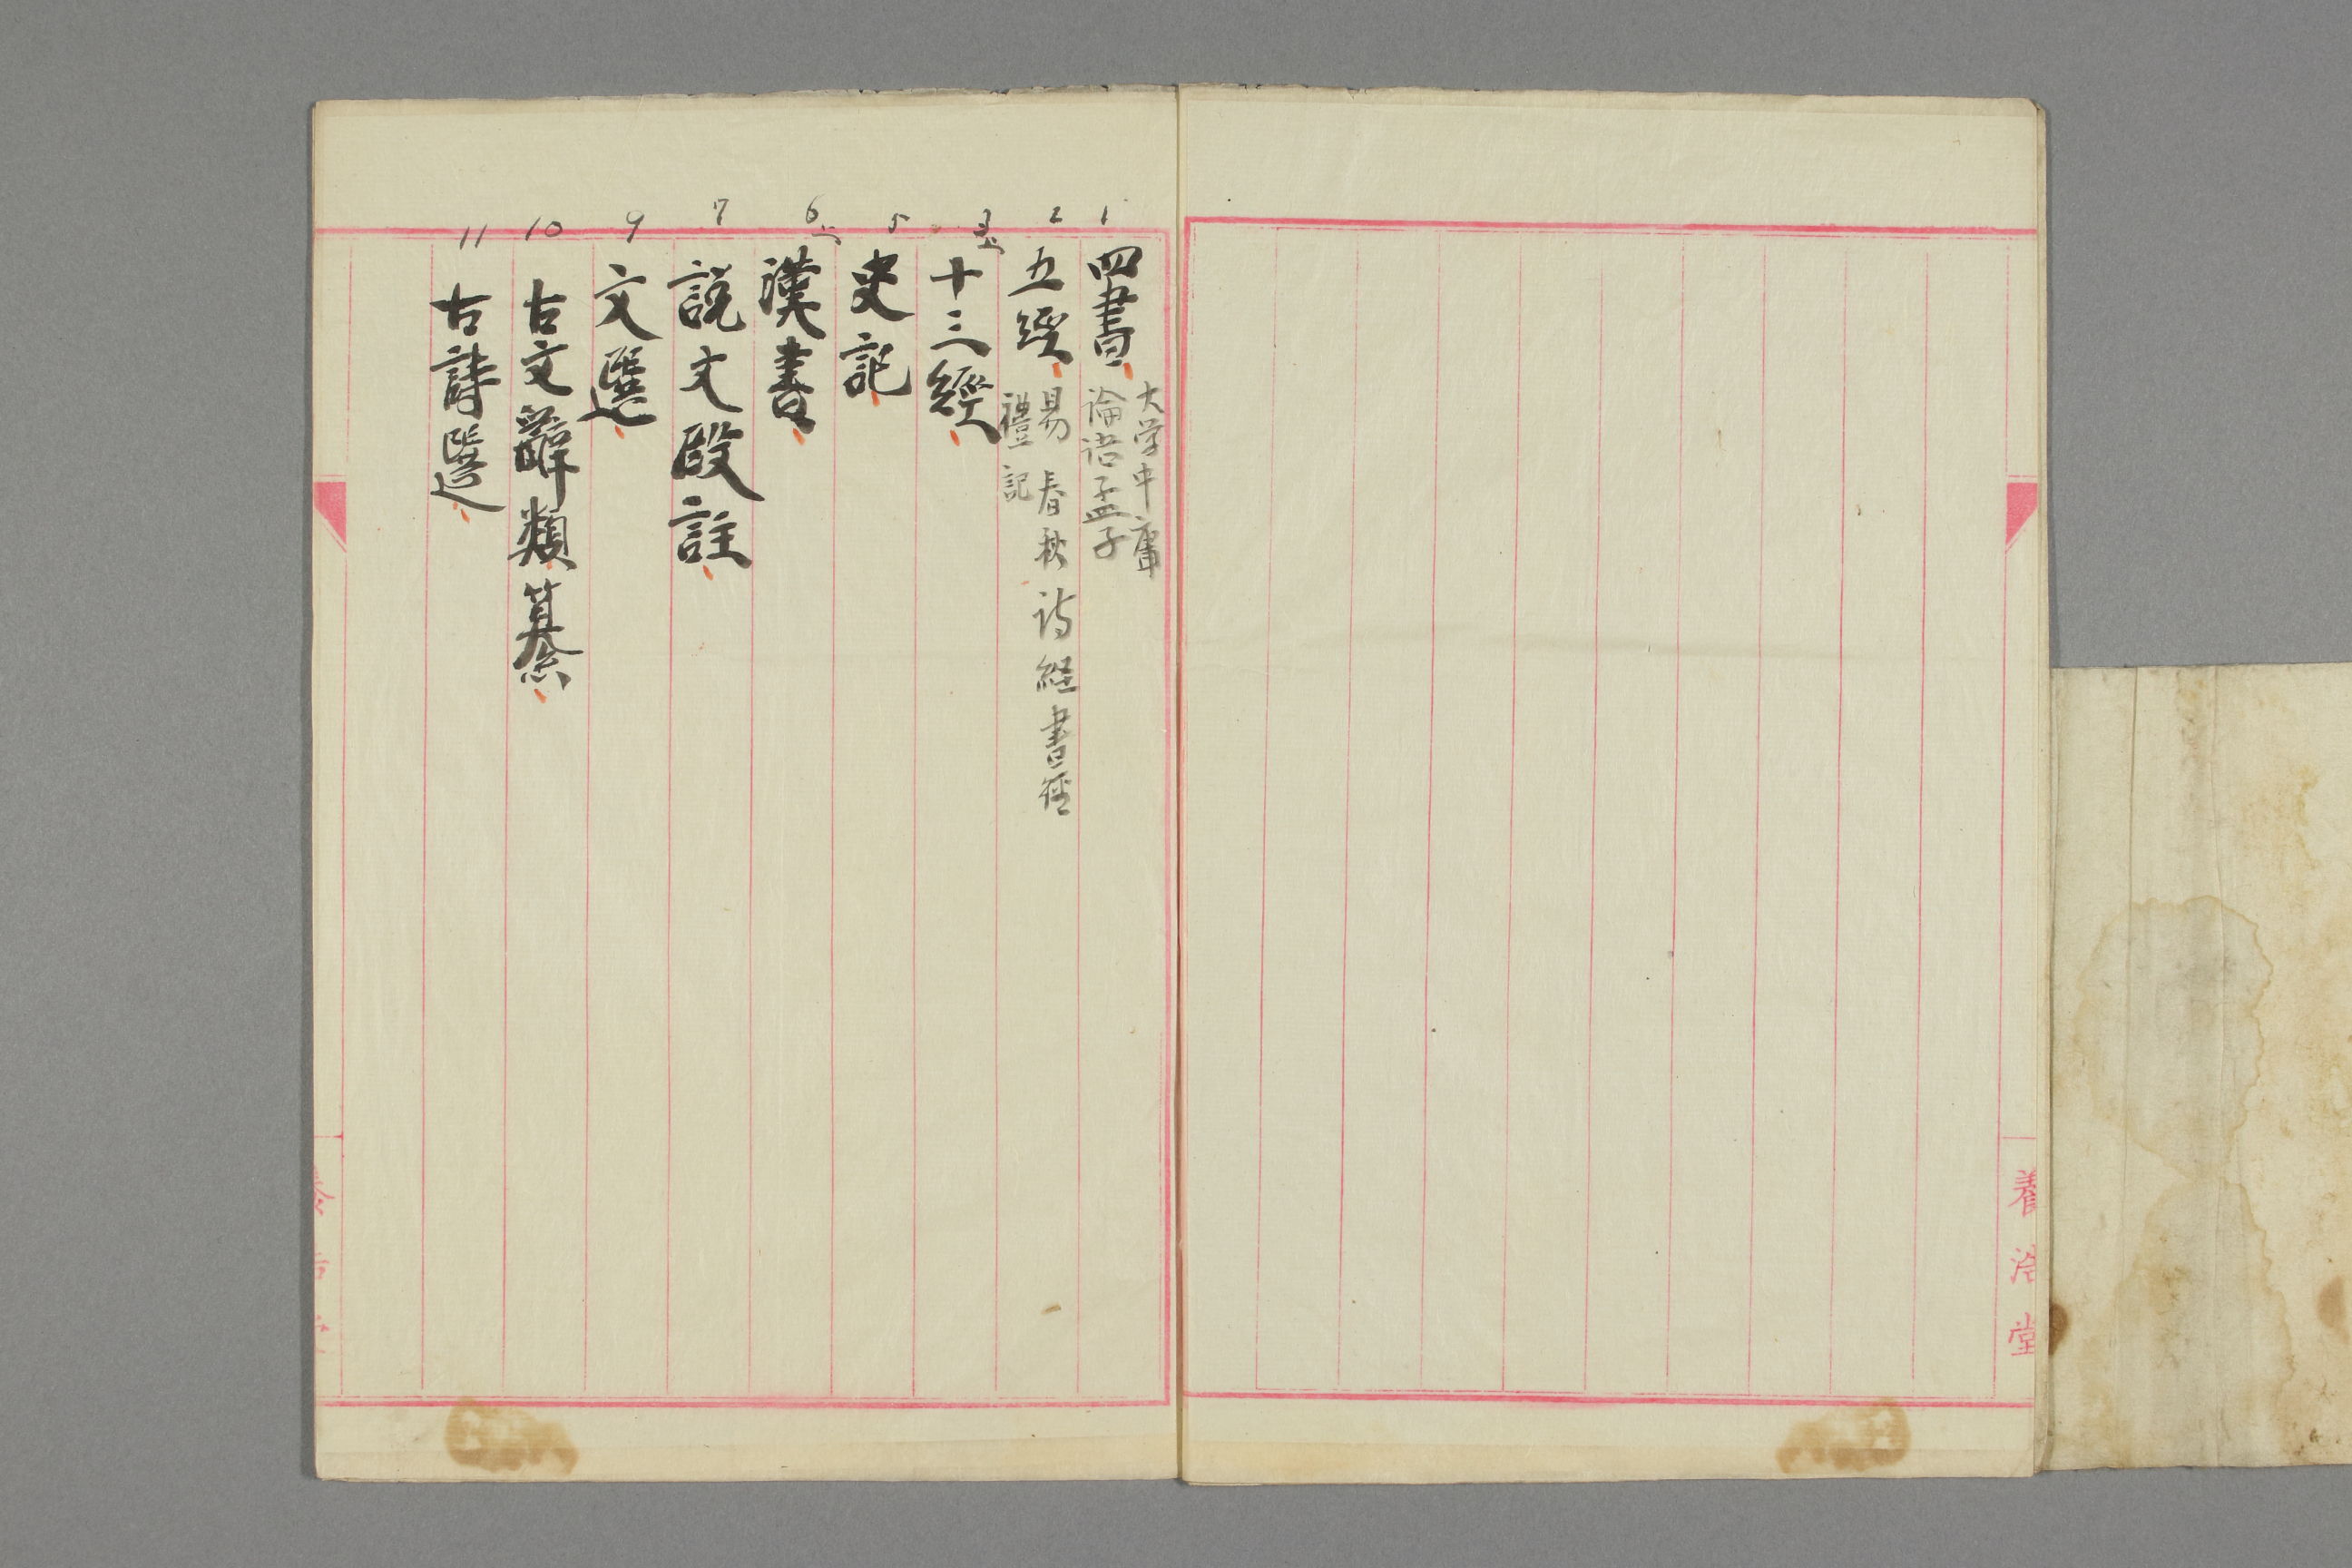 養浩堂
1
四書
大学中庸
論语孟子
2
五經
易 春秋 诗経 書經
禮記
十三經
5
史記
6
漢書
7
説文段註
9
文選
10
古文辭類纂
11
古詩選